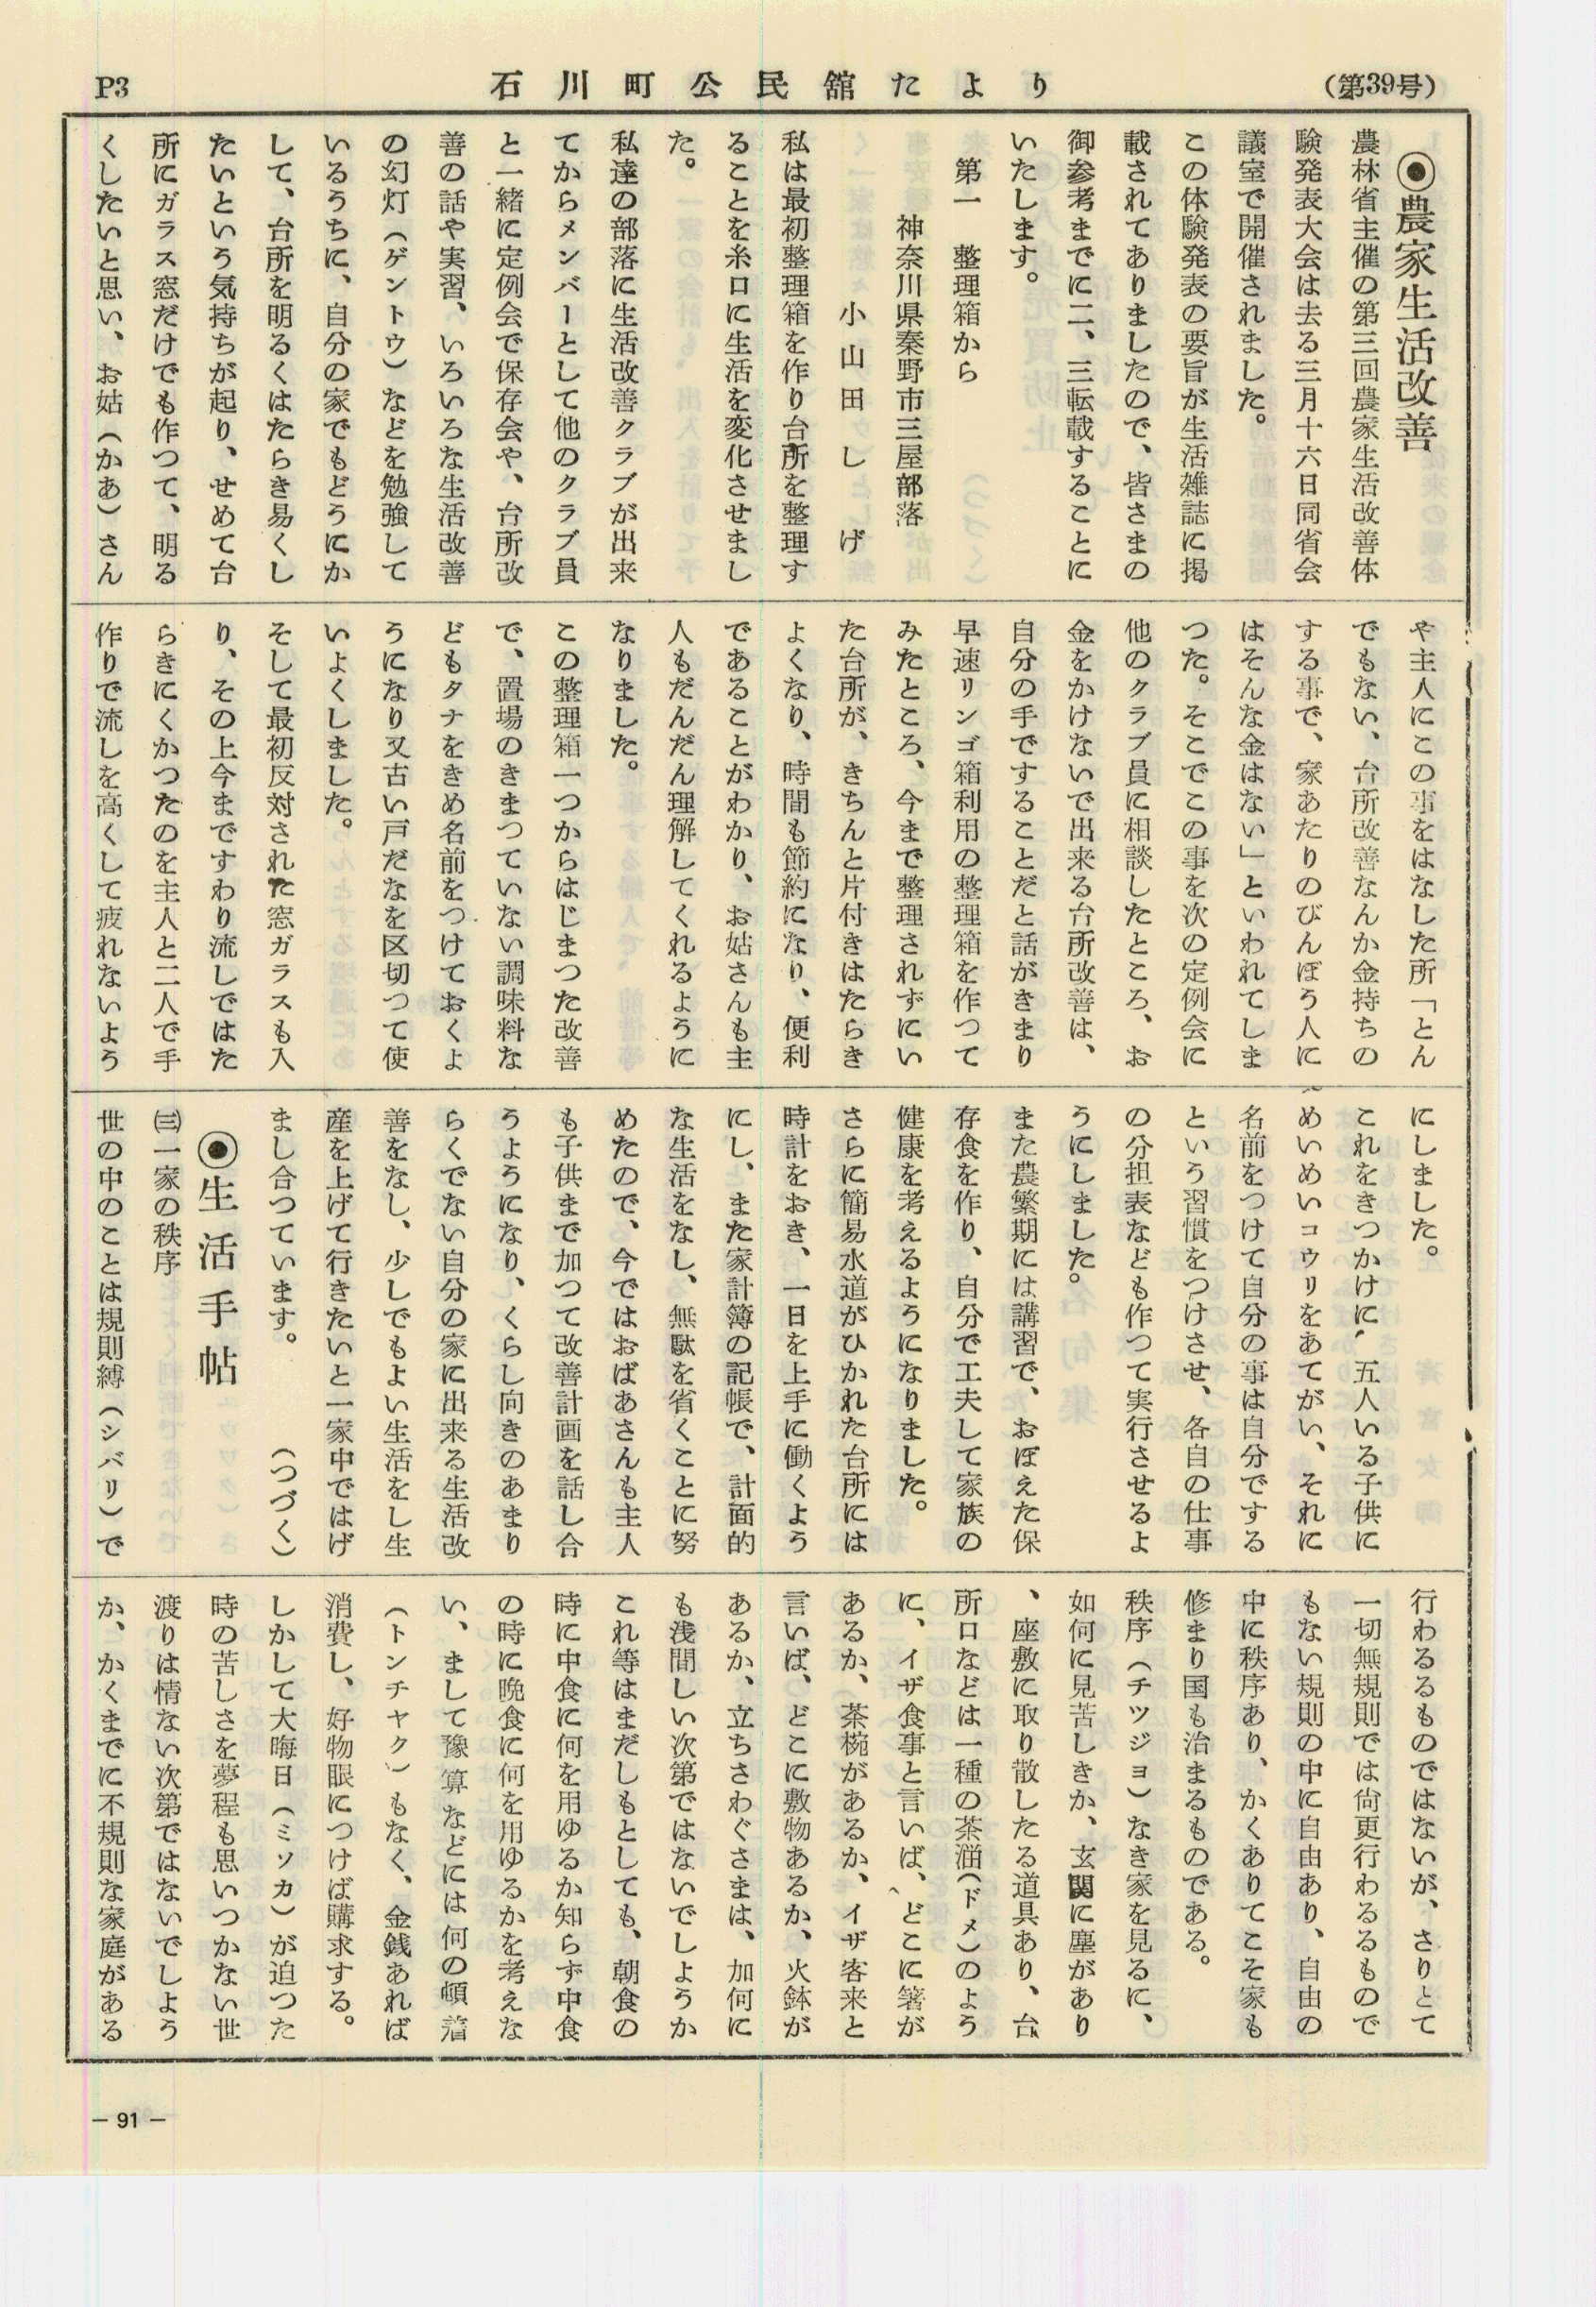 P3
石川町公民舘たより
（第39号）
◉農家生活改善
農林省主催の第三回農家生活改善体
験発表大会は去る三月十六日同省会
議室で開催されました。
この体験発表の要旨が生活雑誌に掲
載されてありましたので、皆さまの
御参考までに二、三転載することに
いたします。
第一　整理箱から
神奈川県秦野市三屋部落
小山田　しげ
私は最初整理箱を作り台所を整理す
ることを糸口に生活を変化させまし
た。
私達の部落に生活改善クラブが出来
てからメンバーとして他のクラブ員
と一緒に定例会で保存会や、台所改
善の話や実習、いろいろな生活改善
の幻灯（ゲントウ）などを勉強して
いるうちに、自分の家でもどうにか
して、台所を明るくはたらき易くし
たいという気持ちが起り、せめて台
所にガラス窓だけでも作つて、明る
くしたいと思い、お姑（かあ）さん
や主人にこの事をはなした所「とん
でもない、台所改善なんか金持ちの
する事で、家あたりのびんぼう人に
はそんな金はない」といわれてしま
つた。そこでこの事を次の定例会に
他のクラブ員に相談したところ、お
金をかけないで出来る台所改善は、
自分の手ですることだと話がきまり
早速リンゴ箱利用の整理箱を作つて
みたところ、今まで整理されずにい
た台所が、きちんと片付きはたらき
よくなり、時間も節約になり、便利
であることがわかり、お姑さんも主
人もだんだん理解してくれるように
なりました。
この整理箱一つからはじまつた改善
で、置場のきまつていない調味料な
どもタナをきめ名前をつけておくよ
うになり又古い戸だなを区切つて使
いよくしました。
そして最初反対された窓ガラスも入
り、その上今まですわり流しではた
らきにくかつたのを主人と二人で手
作りで流しを高くして疲れないよう
にしました。
これをきつかけに、五人いる子供に
めいめいコウリをあてがい、それに
名前をつけて自分の事は自分でする
という習慣をつけさせ、各自の仕事
の分担表なども作つて実行させるよ
うにしました。
また農繁期には講習で、おぼえた保
存食を作り、自分で工夫して家族の
健康を考えるようになりました。
さらに簡易水道がひかれた台所には
時計をおき、一日を上手に働くよう
にし、また家計簿の記帳で、計面的
な生活をなし、無駄を省くことに努
めたので、今ではおばあさんも主人
も子供まで加つて改善計画を話し合
うようになり、くらし向きのあまり
らくでない自分の家に出来る生活改
善をなし、少しでもよい生活をし生
産を上げて行きたいと一家中ではげ
まし合つています。　（つづく）
◉生活手帖
㈢一家の秩序
世の中のことは規則縛（シバリ）で
行わるるものではないが、さりとて
一切無規則では尙更行わるるもので
もない規則の中に自由あり、自由の
中に秩序あり、かくありてこそ家も
修まり国も治まるものである。
秩序（チツジョ）なき家を見るに、
如何に見苦しきか、玄関に塵があり
、座敷に取り散したる道具あり、台
所口などは一種の茶溜（ドメ）のよう
に、イザ食事と言いば、どこに箸が
あるか、茶椀があるか、イザ客来と
言いば、どこに敷物あるか、火鉢が
あるか、立ちさわぐさまは、加何に
も浅間しい次第ではないでしようか
これ等はまだしもとしても、朝食の
時に中食に何を用ゆるか知らず中食
の時に晩食に何を用ゆるかを考えな
い、まして豫算などには何の頓着
（トンチヤク）もなく、金銭あれば
消費し、好物眼につけば購求する。
しかして大晦日（ミソカ）が迫つた
時の苦しさを夢程も思いつかない世
渡りは情ない次第ではないでしよう
か、かくまでに不規則な家庭がある
－91－